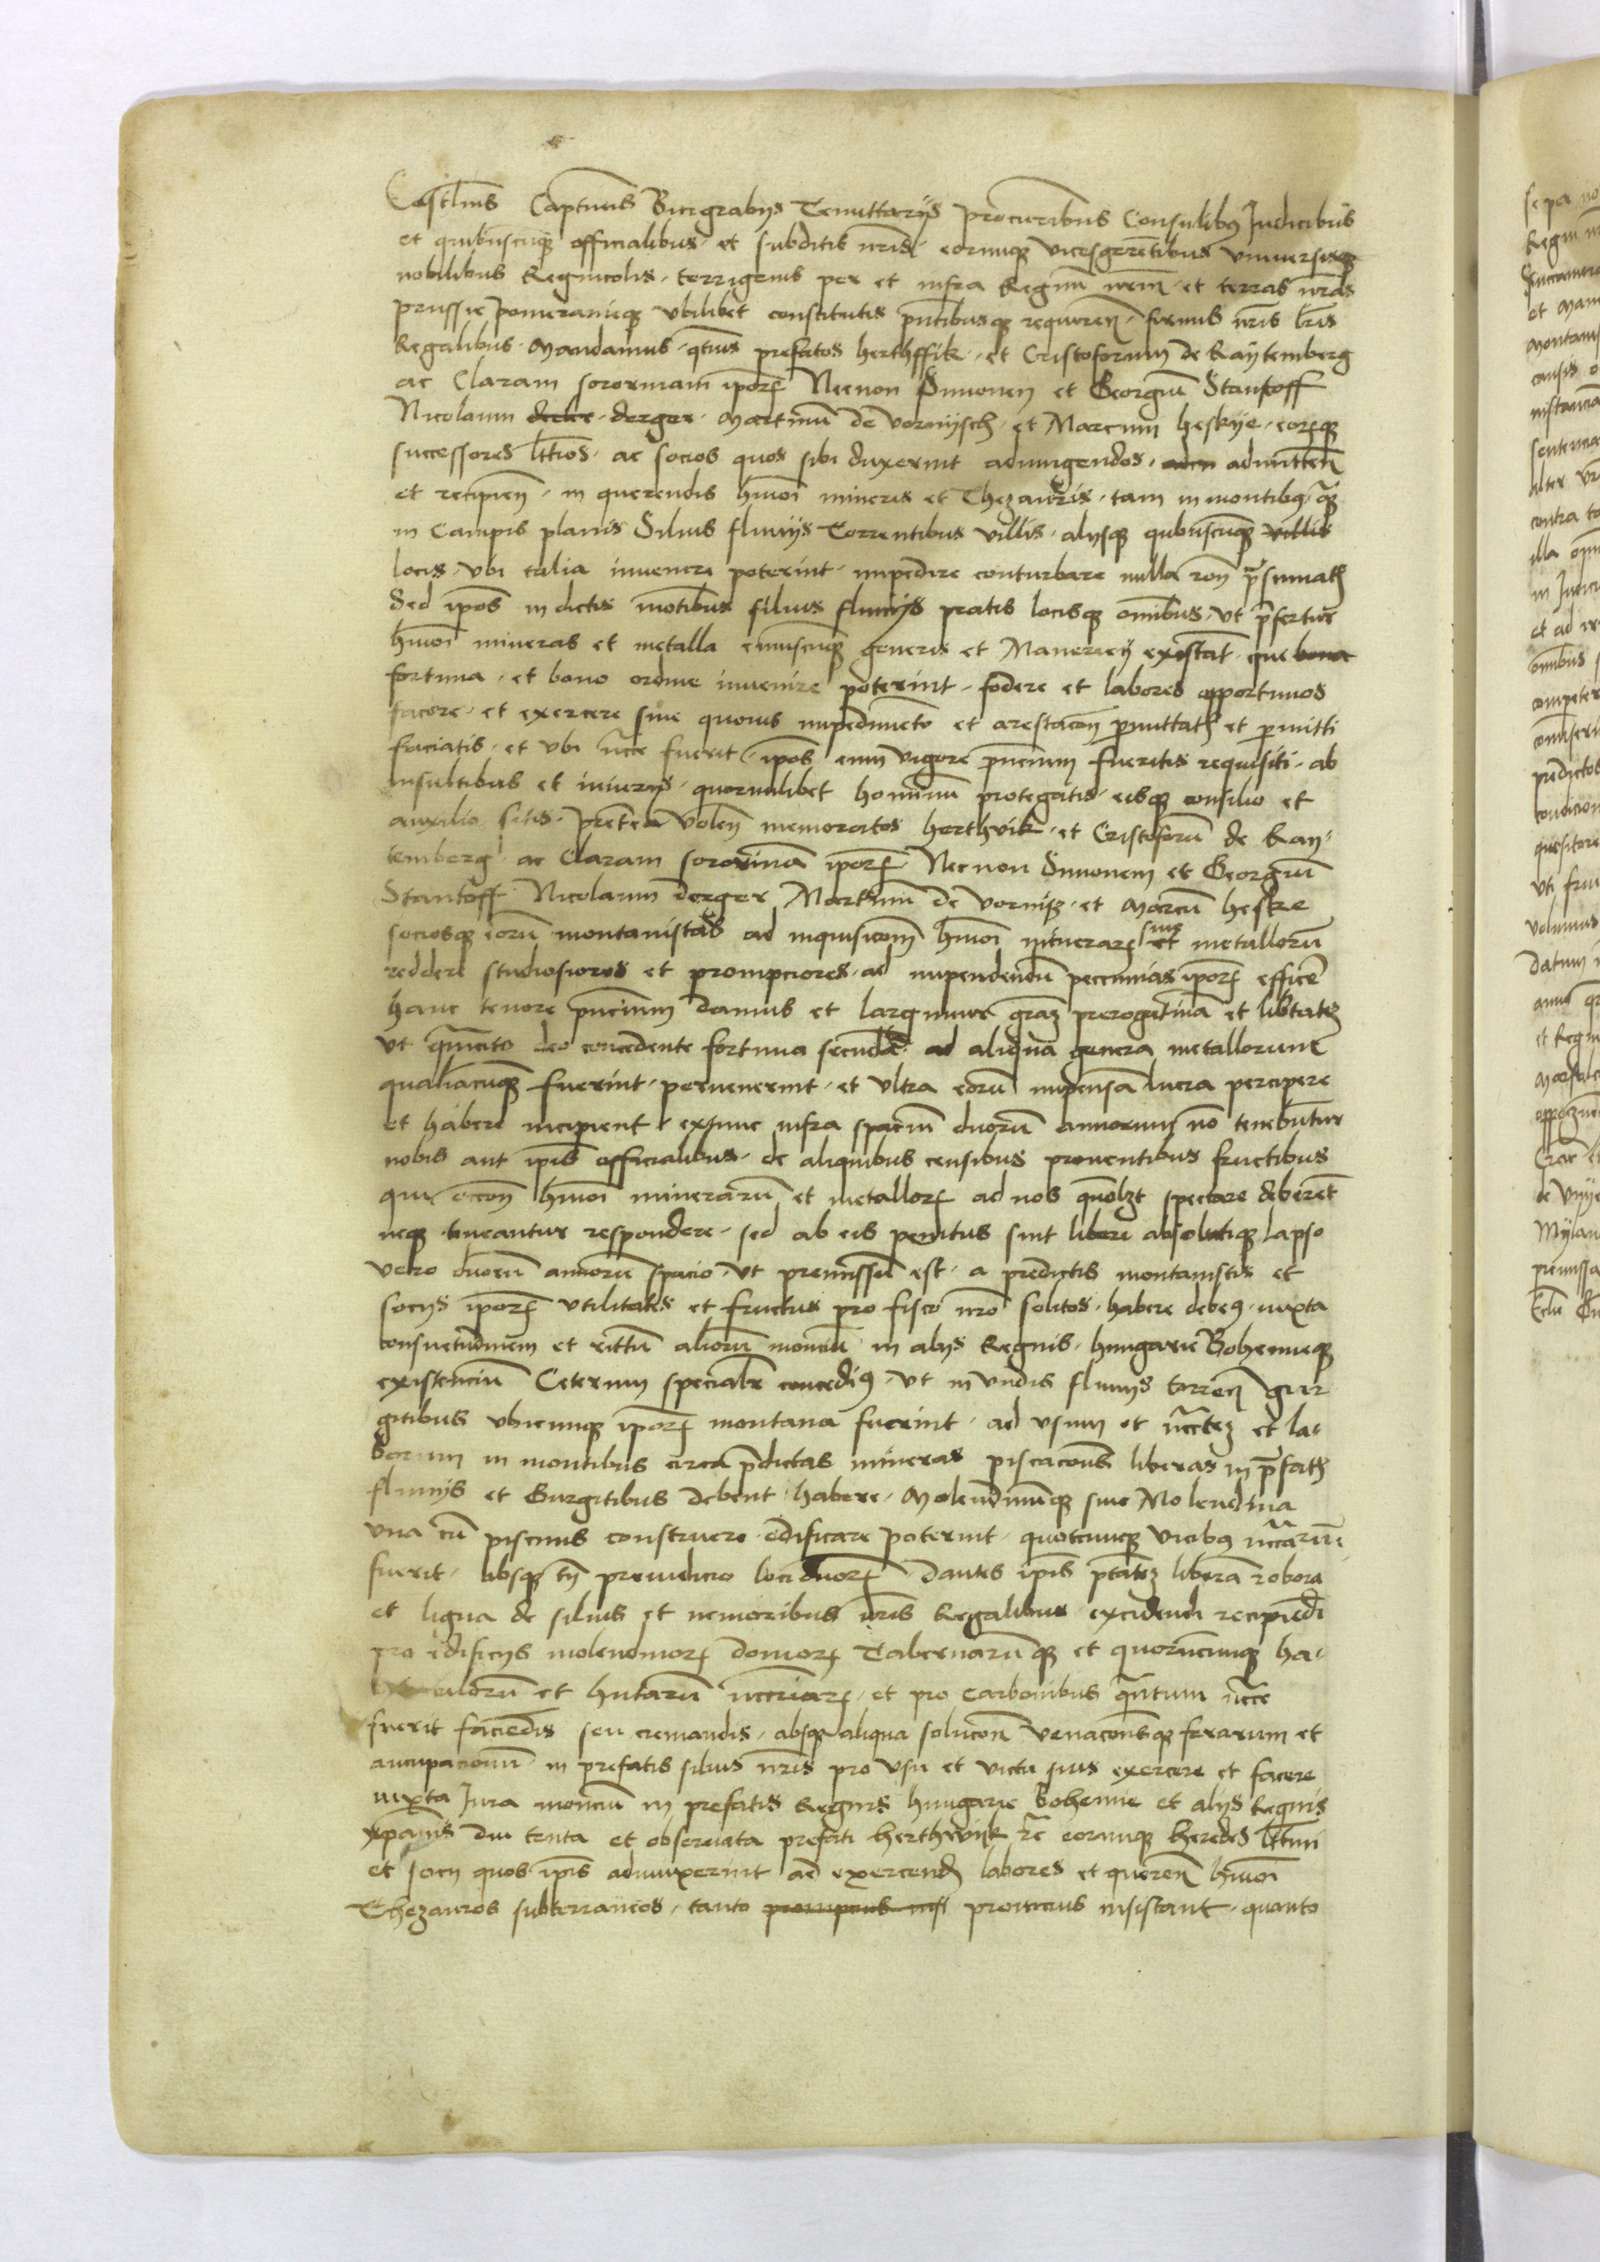 Castlnis Captneis Burgrabijs Tenuttarijs Procuribus Consulibus Judicibus
et quibuscunque officialibus et subditis nris eorumque vicesgerentibus vniuersisque
nobilibus Regnicolis terrigenis per et infra Regnu nrm et terras nras
prussie pomeranieque vbilibet constitutis pntibusque requiren firmis nris lris
Regalibus Mandamus qtnus prefatos herthffik et Cristoforum de Raytemberg
ac Claram sororinam ipor Necnon Simonem et Georgiu Stantoff
Nicolaum derger Martinu de Vornijsch et Marcum heskije eorque
successores lttios ac socios quos sibi duxerint adiungendos admitten
et recipien in querendis hmoi mineris et Thezauris tam in montibus qua
in Campis planis Siluis fluuijs Torrentibus villis alysque quibuscunque villis
locis vbi talia inueniri poterint impedire conturbare nulla ron presumatis
Sed ipos in dictis motibus siluis fluuijs pratis locisque omibus vt prefertur
hmoi mineras et metalla cuiuscunque generis et Maneriey existat que bona
fortuna et bono ordine inuenire poterint fodere et labores opportunos
facere et exercere sine quouis impedimeto et arestacon permittatis et permitti
faciatis et vbi ncce fuerit ipos cum vigore pncium fueritis requisiti ab
insultibus et iniurijs quorumlibet hominu protegatis eisque consilio et
auxilio sitis Preterea volen memoratos herthvik et Cristoforu de Ray
temberg ac Claram sororina ipor Necnon Simonem et Georgiu
Stantoff Nicolaum derger Martinu de Vornisz et Marcu heske
sociosque eoru montanistas ad inquisicom hmoi minerar siue et metalloru
reddere studiosiores et prompciores ad impendendu peccunias ipor efficere
hanc tenore pncium damus et largimur graz prerogatiua et libtatez
vt quacito deo concedente fortuna secunda ad aliqua genera metallorum
qualiacunque fuerint peruenerint et vltra eoru impensa lucra percipere
et habere incipient extunc infra spaciu duoru annorum no tenebuntur
nobis aut ipis officialibus de aliquibus censibus prouentibus fructibus
qui occon hmoi mineraru et metallor ad nos quolzt spectare deberent
neque teneantur respondere sed ab eis penitus sint liberi absolutique lapso
vero duoru annoru spacio vt premissu est a predictis montanistis et
socijs ipor vtilitates et fructus pro fisco nro solitos habere debeus iuxta
consuetudinem et rittu alioru monciu in alys Regnis hungarie Bohemieque
existenciu Ceterum specialr concedius vt in vndis fluuijs torren gur
gitibus vbicunque ipor montana fuerint ad vsum et nccitez et la
borum in montibus circa predictas mineras piscacones liberas in prefatis
fluuijs et Gurgitibus debent habere Molendinumque siue Molendina
vna cu piscinis construere edificare poterint quotcunque vicibus nccarium
fuerit absque tn preiudicio loci duor dantes ipis ptatez libera robora
et ligna de siluis et nemoribus nris Regalibus excidendi recipiedi
pro edificijs molendinor domor Tabernaruque et quorumcunque ha
et hutaru nccriar et pro carbonibus quantum ncce
fuerit faciedis seu cremandis absque aliqua solucon venaconesque ferarum et
aucupacionum in prefatis siluis nris pro vsu et victu suis exercere et facere
iuxta Jura monciu in prefatis Regnis hungarie bohemie et alijs Regnis
xpianis diu tenta et obseruata prefati herthwijk re eorumque heredes lttimi
et socij quos ipis adiunxerint ad exercend labores et queren hmoi
Thezauros subterraneos tanto prompcius insistant quanto